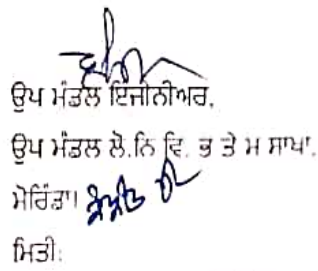 ਉਪ ਮੰਡਲ ਇੰਜੀਨੀਅਰ,
ਉਪ ਮੰਡਲ ਲੋ.ਨਿ ਵਿ. ਭ ਤੇ ਮ ਸਾਖਾ,
ਮੋਰਿੰਡਾ।
ਮਿਤੀ: